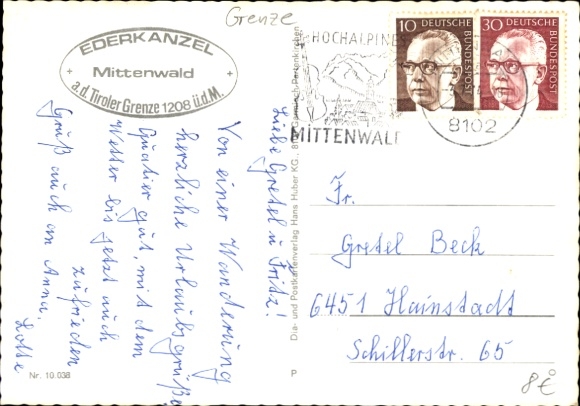 Grenze
EDERKANZEL
Mittenwald
a.d. Tiroler Grenze 1208 ü.d.M.
HOCHALPINE
MITTENWALD
8102
10 DEUTSCHE BUNDESPOST
30 DEUTSCHE BUNDESPOST
Liebe Gretel u Fritz!
Von einer Wanderung
herzliche Urlaubsgrüße
Quatier gut, mit dem
Wetter bis jetzt auch
zufrieden
Gruß auch an Anna.
Lotte
Dia- und Postkartenverlag Hans Huber KG., Garmisch-Partenkirchen
Fr.
Gretel Beck
6451 Hainstadt
Schillerstr. 65
Nr. 10 038
P
8€